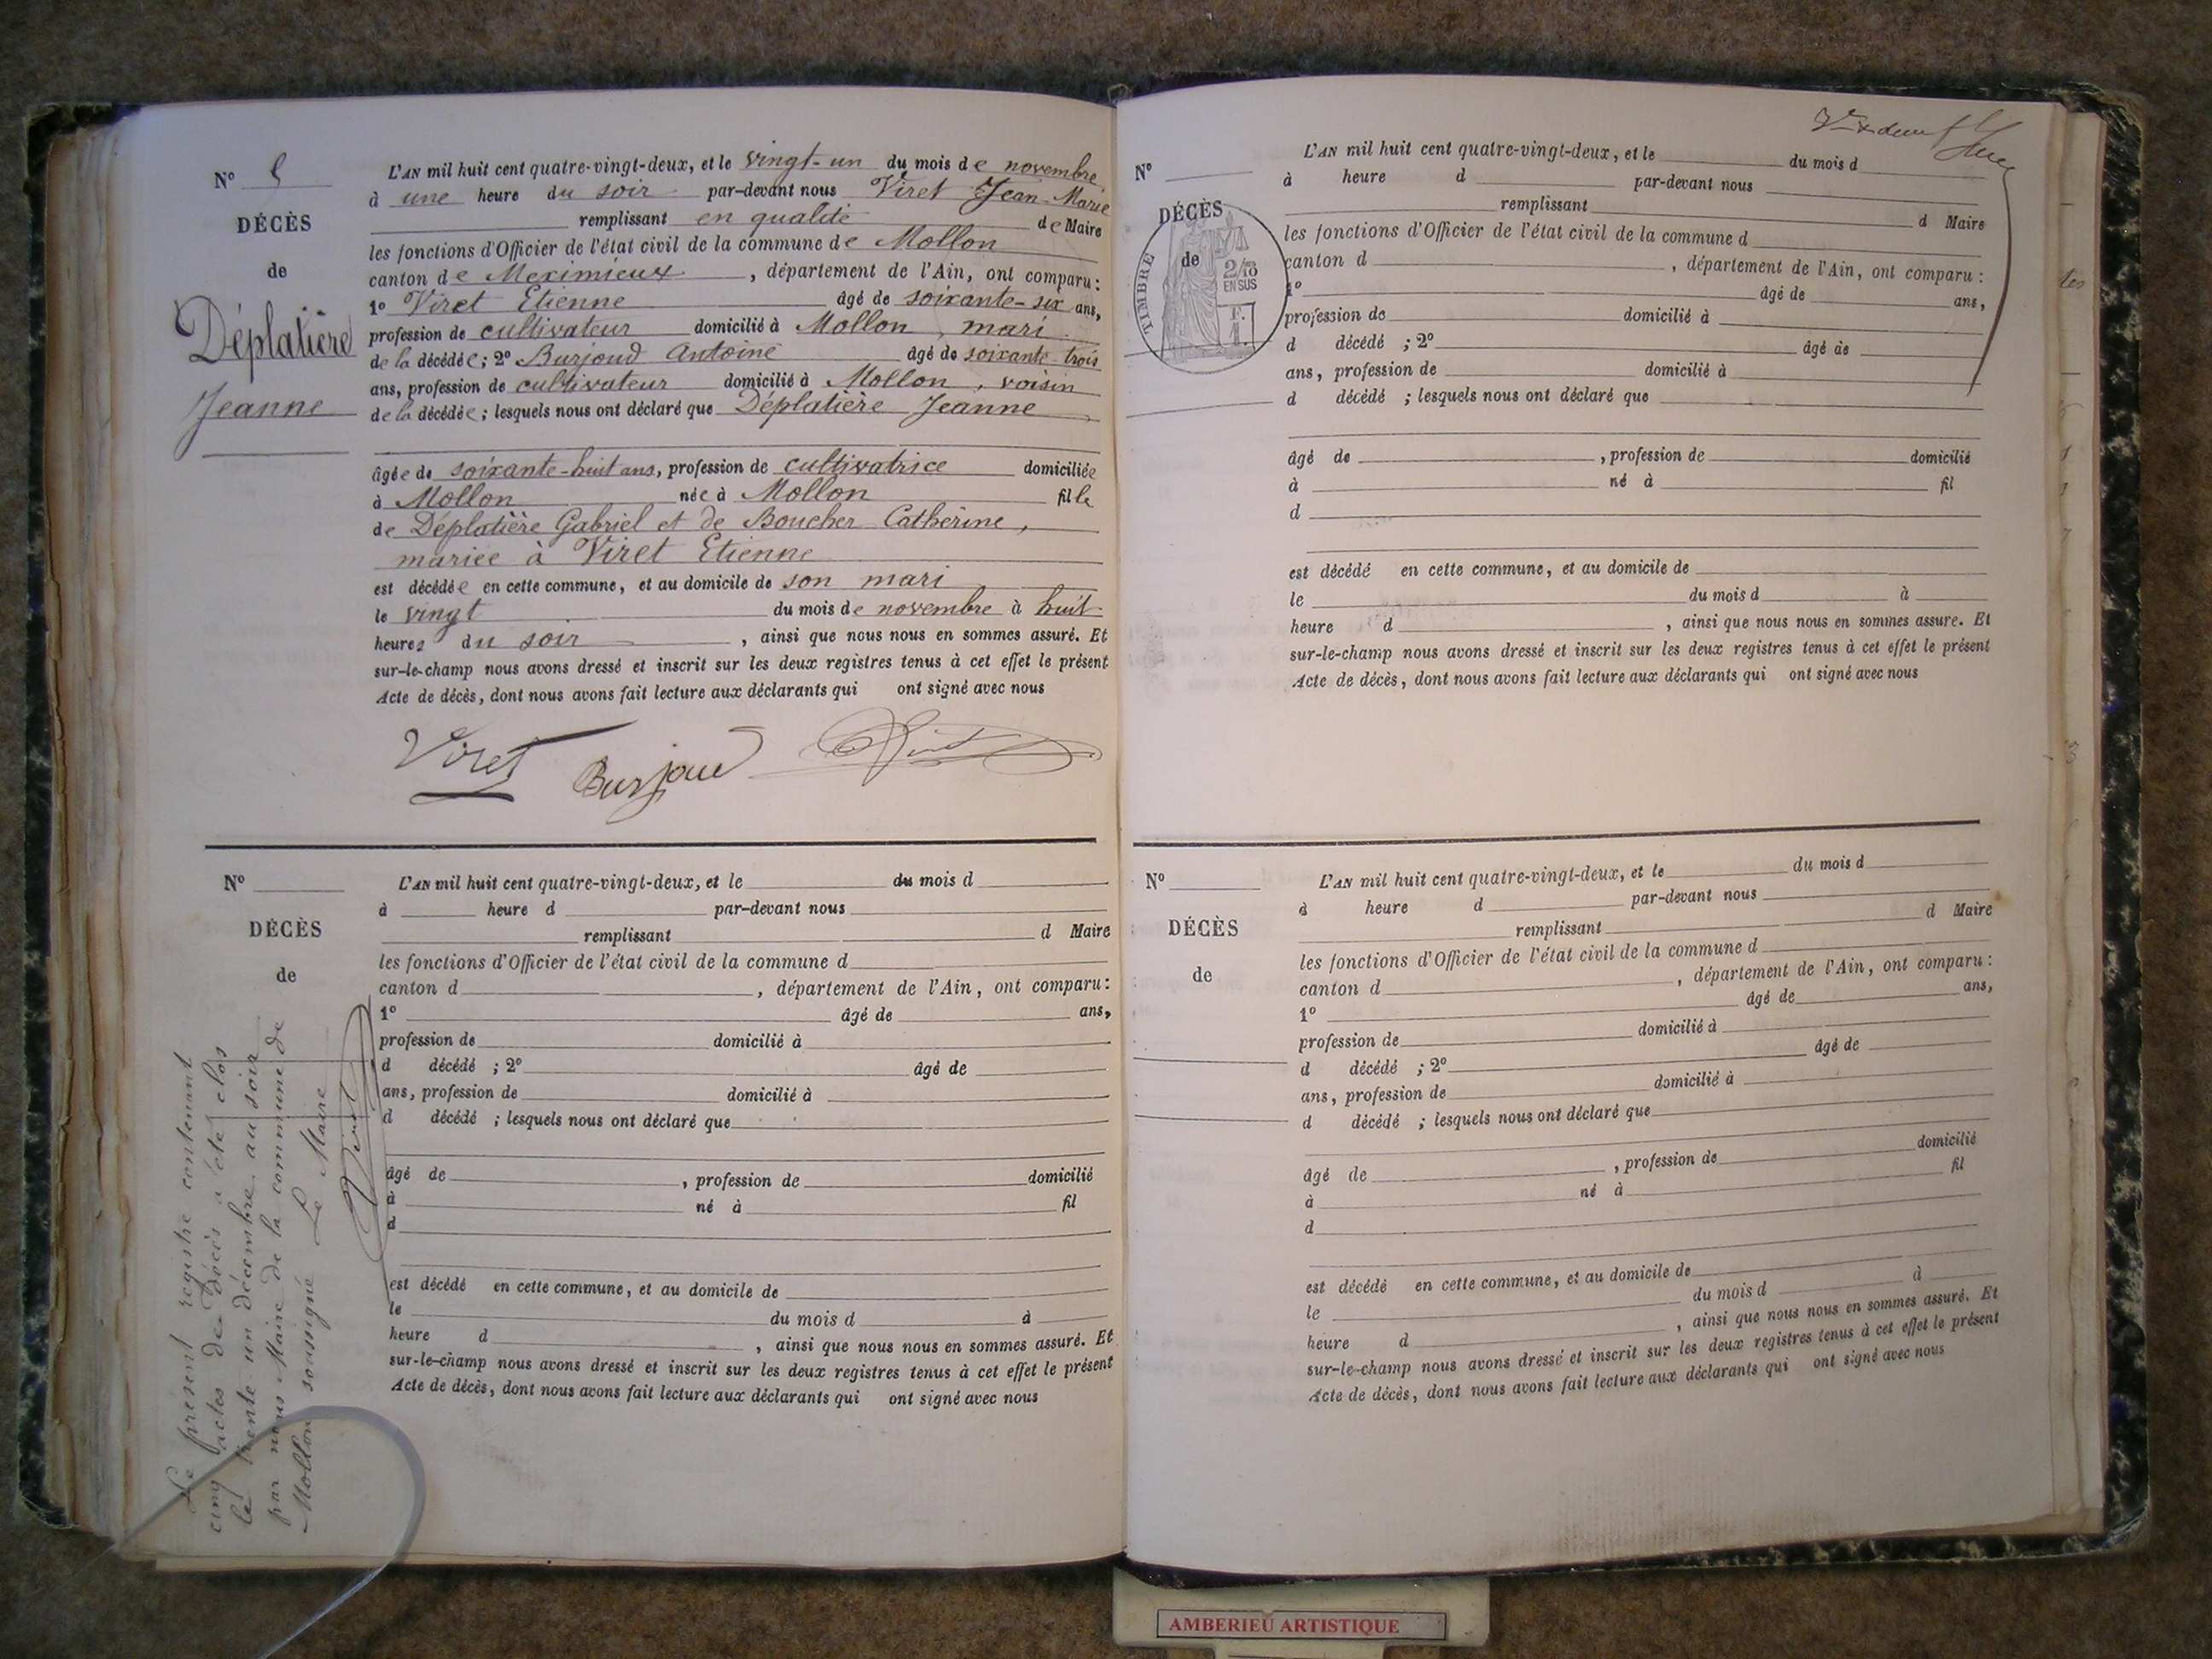 N° 5
DÉCÈS
de
Déplatière
Jeanne
L'AN mil huit cent quatre-vingt-deux, et le vingt-un du mois de novembre
à une heure du soir par-devant nous Viret Jean-Marie
remplissant en qualité de Maire
les fonctions d'Officier de l'état civil de la commune de Mollon
canton de Meximieux, département de l'Ain, ont comparu:
1° Viret Etienne âgé de soixante-six ans,
profession de cultivateur domicilié à Mollon, mari
de la décédée; 2° Burjoud Antoine âgé de soixante-trois
ans, profession de cultivateur domicilié à Mollon, voisin
de la décédée; lesquels nous ont déclaré que Déplatière Jeanne
âgée de soixante-huit ans, profession de cultivatrice domiciliée
à Mollon née à Mollon fille
de Déplatière Gabriel et de Boucher Catherine,
mariée à Viret Etienne
est décédée en cette commune, et au domicile de son mari
le vingt du mois de novembre à huit
heures du soir, ainsi que nous nous en sommes assuré. Et
sur-le-champ nous avons dressé et inscrit sur les deux registres tenus à cet effet le présent
Acte de décès, dont nous avons fait lecture aux déclarants qui ont signé avec nous
Viret Burjoud Viret
N°
DÉCÈS
de
L'AN mil huit cent quatre-vingt-deux, et le du mois d
à heure d par-devant nous
remplissant d Maire
les fonctions d'Officier de l'état civil de la commune d
canton d , département de l'Ain, ont comparu:
1° âgé de ans,
profession de domicilié à
d décédé ; 2° âgé de
ans, profession de domicilié à
d décédé ; lesquels nous ont déclaré que
âgé de , profession de domicilié
à né à fil
d
est décédé en cette commune, et au domicile de
le du mois d à
heure d , ainsi que nous nous en sommes assuré. Et
sur-le-champ nous avons dressé et inscrit sur les deux registres tenus à cet effet le présent
Acte de décès, dont nous avons fait lecture aux déclarants qui ont signé avec nous
Le présent registre contenant
cinq actes de Décès a été clos
le trente un décembre au soir
par nous Maire de la commune de
Mollon soussigné Le Maire
Viret
N°
DÉCÈS
de
TIMBRE
2/10
EN SUS
F.
1.
L'AN mil huit cent quatre-vingt-deux, et le du mois d
à heure d par-devant nous
remplissant d Maire
les fonctions d'Officier de l'état civil de la commune d
canton d , département de l'Ain, ont comparu:
1° âgé de ans,
profession de domicilié à
d décédé ; 2° âgé de
ans, profession de domicilié à
d décédé ; lesquels nous ont déclaré que
âgé de , profession de domicilié
à né à fil
d
est décédé en cette commune, et au domicile de
le du mois d à
heure d , ainsi que nous nous en sommes assuré. Et
sur-le-champ nous avons dressé et inscrit sur les deux registres tenus à cet effet le présent
Acte de décès, dont nous avons fait lecture aux déclarants qui ont signé avec nous
N°
DÉCÈS
de
L'AN mil huit cent quatre-vingt-deux, et le du mois d
à heure d par-devant nous
remplissant d Maire
les fonctions d'Officier de l'état civil de la commune d
canton d , département de l'Ain, ont comparu:
1° âgé de ans,
profession de domicilié à
d décédé ; 2° âgé de
ans, profession de domicilié à
d décédé ; lesquels nous ont déclaré que
âgé de , profession de domicilié
à né à fil
d
est décédé en cette commune, et au domicile de
le du mois d à
heure d , ainsi que nous nous en sommes assuré. Et
sur-le-champ nous avons dressé et inscrit sur les deux registres tenus à cet effet le présent
Acte de décès, dont nous avons fait lecture aux déclarants qui ont signé avec nous
AMBERIEU ARTISTIQUE